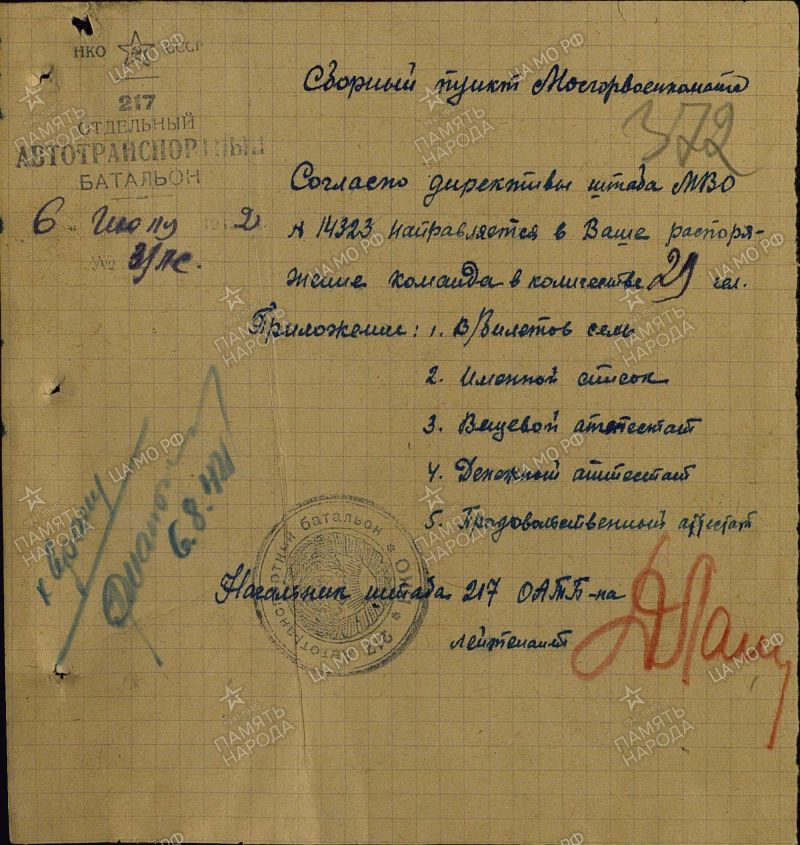 НКО СССР
217
ОТДЕЛЬНЫЙ
АВТОТРАНСПОРТНЫЙ
БАТАЛЬОН
6 " Июлу 1942
№ 31/пс.
Сборный пункт Мосгорвоенкомата
372
Согласно директивы штаба МВО
№ 14323 направляется в Ваше распоря-
жение команда в количестве 29 чел.
Приложение: 1. В/билетов семь
2. Именной список
3. Вещевой аттестат
4. Денежный аттестат
5. Продовольственный аттестат
6.8.42
Начальник штаба 217 ОАТБ-на
лейтенант
217 Автотранспортный батальон * НКО *
ЦА МО РФ
ПАМЯТЬ НАРОДА